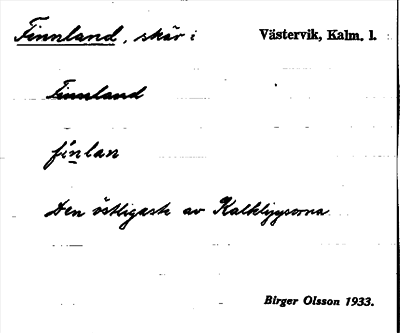 Finnland, skär i Västervik, Kalm. l.
Finnland
finlan
Den östligaste av
Birger Olsson 1933.